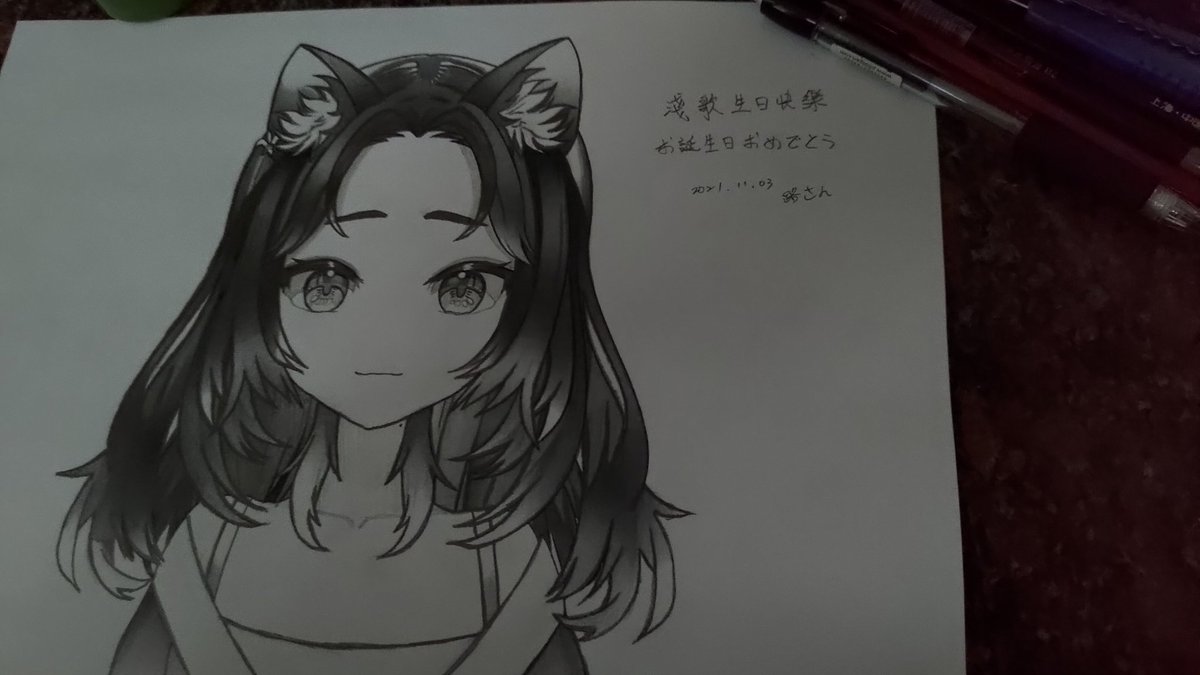 淺歌生日快樂
お誕生日おめでとう
2021.11.03 路さん